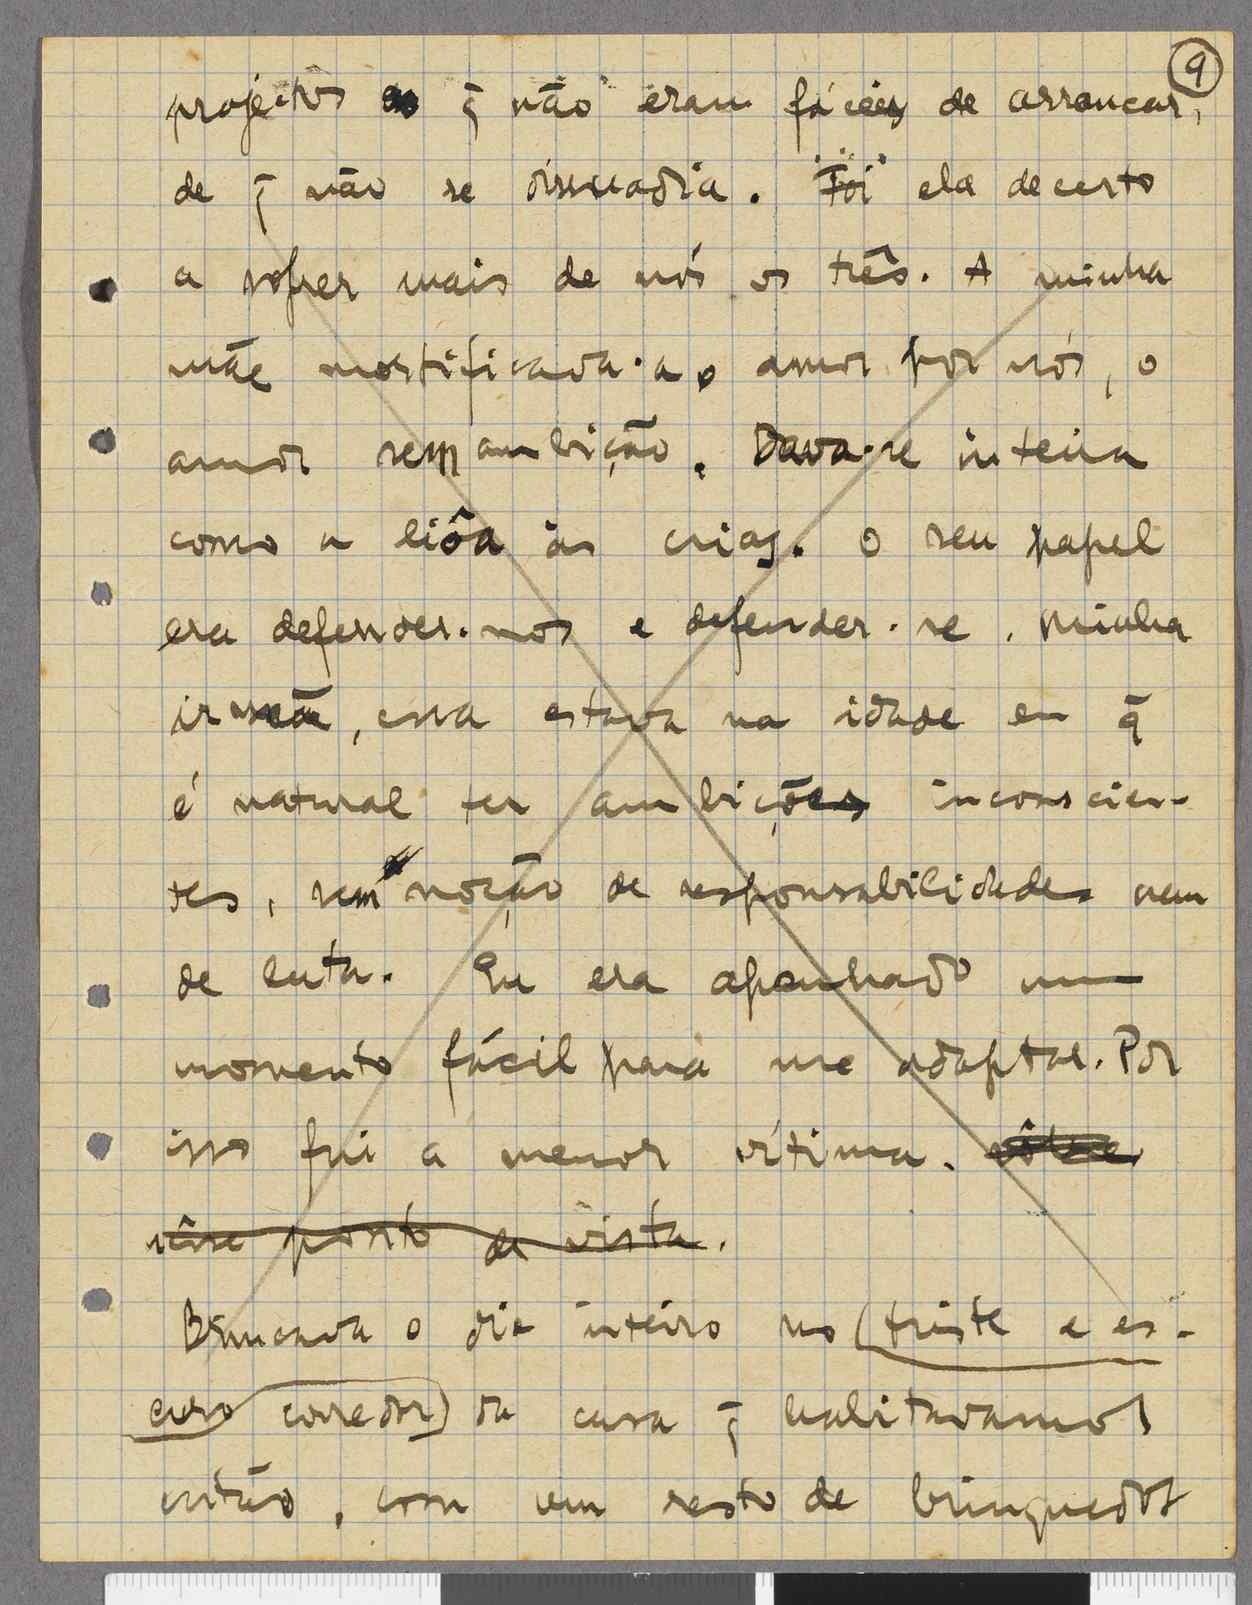 9
projectos q̃ não eram fáceis de arrancar,
de q̃ não se dissuadia. Foi ela decerto
a sofrer mais de nós os três. A minha
mãe mortificava-a o amor por nós, o
amor sem ambição. Dava-se inteira
como a liôa às crias. O seu papel
era defender-nos e defender-se. Minha
irmã, essa estava na idade em q̃
é natural ter ambições inconscien-
tes, sem noção de responsabilidades nem
de luta. Eu era apanhado num
momento fácil para me adaptar. Por
isso fui a menor vítima.
nêsse ponto de vista.
Brincava o dia inteiro no (triste e es-
curo corredor) da casa q̃ habitavamos
então, com um resto de brinquedos